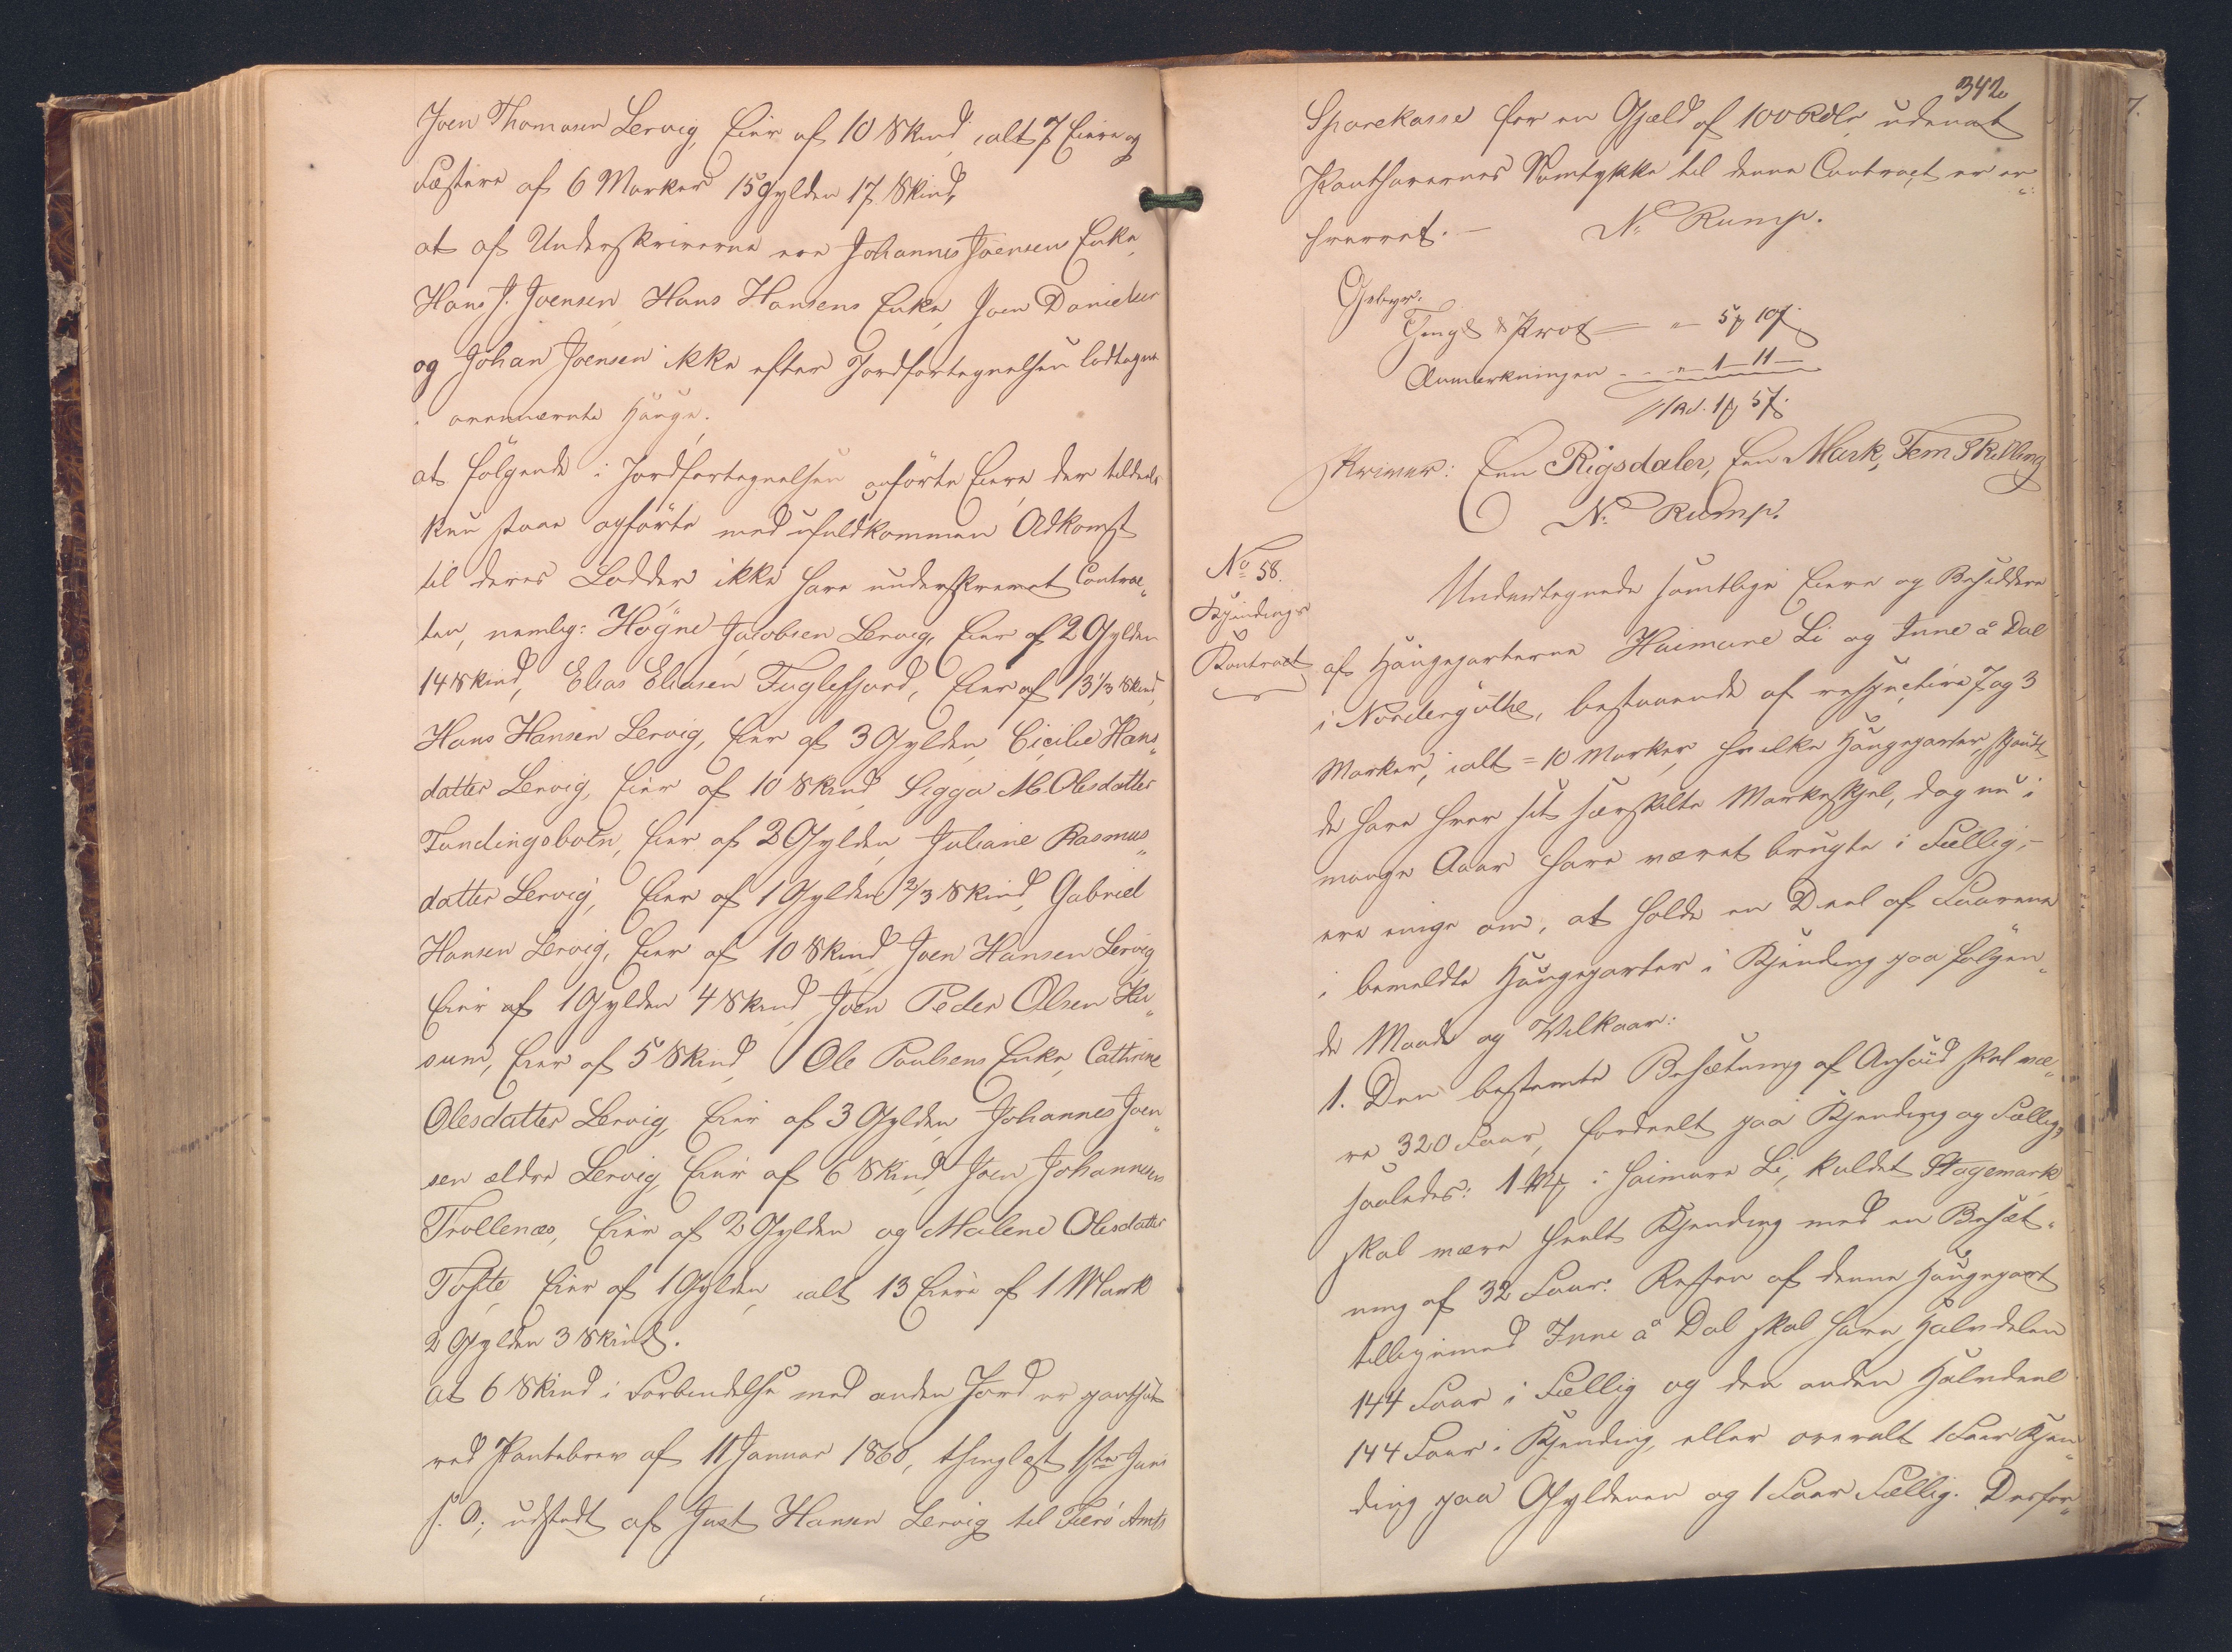 Joen Thomasen Lervig, Eier af 10 Skind, ialt 7 Eiere og
Fæstere af 6 Marker 15 Gylden 17 Skind,
at af Underskriverne ere Johannes Joensens Enke,
Hans J. Joensen, Hans Hansens Enke, Joen Danielsen
og Johan Joensen ikke efter Jordfortegnelsen lodtagne
i ovennævnte Hauge.
at følgende i Jordfortegnelsen anførte Eiere, der tildeels
kun staae opførte med ufuldkommen Adkomst
til deres Lodder ikke have underskrevet Contrac„
ten, nemlig: Högne Jacobsen Lervig, Eier af 2 Gylden
14 Skind, Elias Eliasen Fuglefjord, Eier af 13 1/3 Skind,
Hans Hansen Lervig, Eier af 3 Gylden, Cicilie Hans„
datter Lervig, Eier af 10 Skind, Sigga M. Olesdatter
Fundingsbotn, Eier af 2 Gylden, Juliane Rasmus„
datter Lervig, Eier af 1 Gylden 2/3 Skind, Gabriel
Hansen Lervig, Eier af 10 Skind, Joen Hansen Lervig,
Eier af 1 Gylden 4 Skind, Joen Peder Olsen Hu„
sum, Eier af 5 Skind, Ole Poulsens Enke, Cathrine
Olesdatter Lervig, Eier af 3 Gylden, Johannes Joen„
sen ældre Lervig, Eier af 6 Skind, Joen Johannesen
Trollenæs, Eier af 2 Gylden og Malene Olesdatter
Tofte, Eier af 1 Gylden, ialt 13 Eiere af 1 Mark
2 Gylden 3 Skind.
at 6 Skind i Forbindelse med anden Jord er pantsat
ved Pantebrev af 11 Januar 1860, thinglæst 1ste Juni
s. A., udstedt af Just Hansen Lervig til Færö Amts
342
Sparekasse for en Gjæld af 100 Rdlr, uden at
Panthavernes Samtykke til denne Contract er er„
hvervet. — N. Rump.
Gebyr:
Tingl & Prot — " — 5 ß 10 f.
Anmærkningen - - " — 1 — 11 —
1 Rd. 1 ß 5 f.
skriver: Een Rigsdaler, Een Mark, Fem Skilling
N. Rump.
No 58.
Kjendings
Kontract
Undertegnede samtlige Eiere og Besiddere
af Haugeparterne Haimare Li og Inne å Dal
i Nordergöthe, bestaaende af respective 7 og 3
Marker, ialt = 10 Marker, hvilke Haugeparter, skjöndt
de have hver sit særskilte Markeskjel, dog nu i
mange Aar have været brugte i Fællig, –
ere enige om, at holde en Deel af Faarene
i bemeldte Haugeparter i Kjending paa følgen„
de Maade og Vilkaar:
1. Den bestemte Besætning af Anhöid skal væ„
re 320 Faar, fordeelt paa Kjending og Fællig,
saaledes: 1 Mk i Haimare Li, kaldet Stagemark
skal være heelt Kjending med en Besæt„
ning af 32 Faar. Resten af denne Haugepart
tilligemed Inne å Dal skal have Halvdelen
144 Faar i Fællig og den anden Halvdeel
144 Faar i Kjending, eller overalt 1 Faar Kjen„
ding paa Gyldenen og 1 Faar Fællig. Desfor„